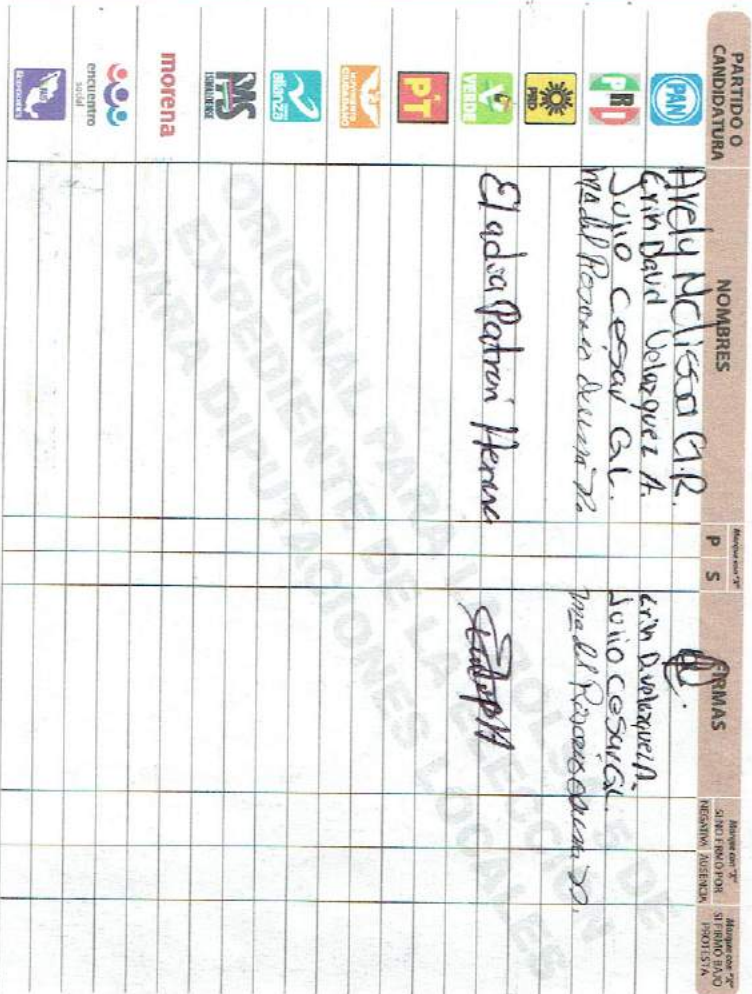 PARTIDO O CANDIDATURA
NOMBRES
Marque con "X"
P S
FIRMAS
Marque con "X" SI NO FIRMÓ POR
NEGATIVA AUSENCIA
Marque con "X" SI FIRMÓ BAJO PROTESTA
PAN
Arely Melissa G.R.
Erin David Velazquez A.
Erin D. velazquez A
PRI
Julio Cesar G.L.
Julio Cesar G.L.
PRD
Ma del Rosario
Ma del Rosario
VERDE
Eladia Patron Herrera
PT
MOVIMIENTO CIUDADANO
alianza
PAS
morena
encuentro social
ORIGINAL PARA LA BOLSA S DE
EXPEDIENTE DE LA ELECCIÓN
PARA DIPUTACIONES LOCALES